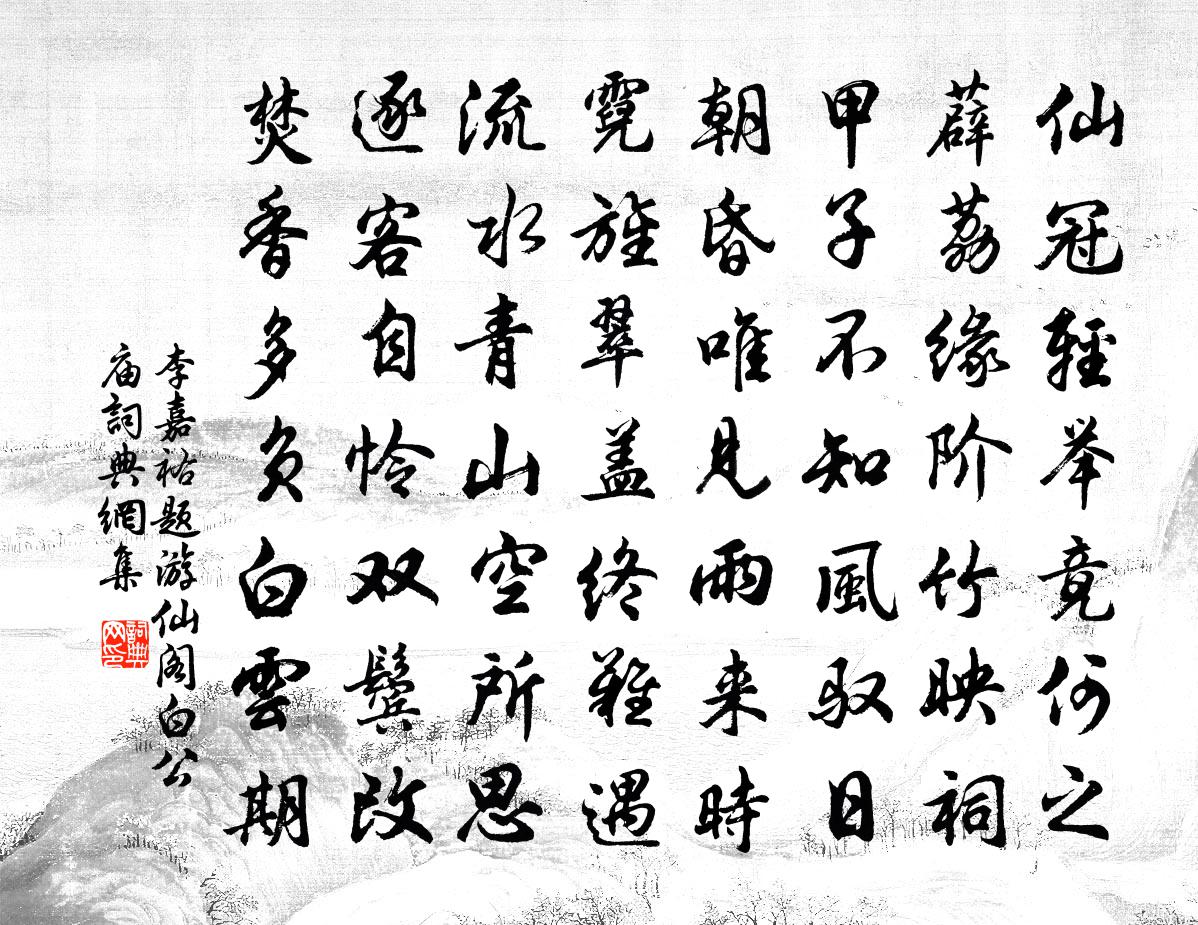 仙冠輕举竟何之
薜荔缘阶竹映祠
甲子不知風驭日
朝昏唯見雨来時
霓旌翠盖终難遇
流水青山空所思
逐客自怜双鬓改
焚香多负白雲期
李嘉祐题游仙阁白公
庙詞典網集
詞典网印